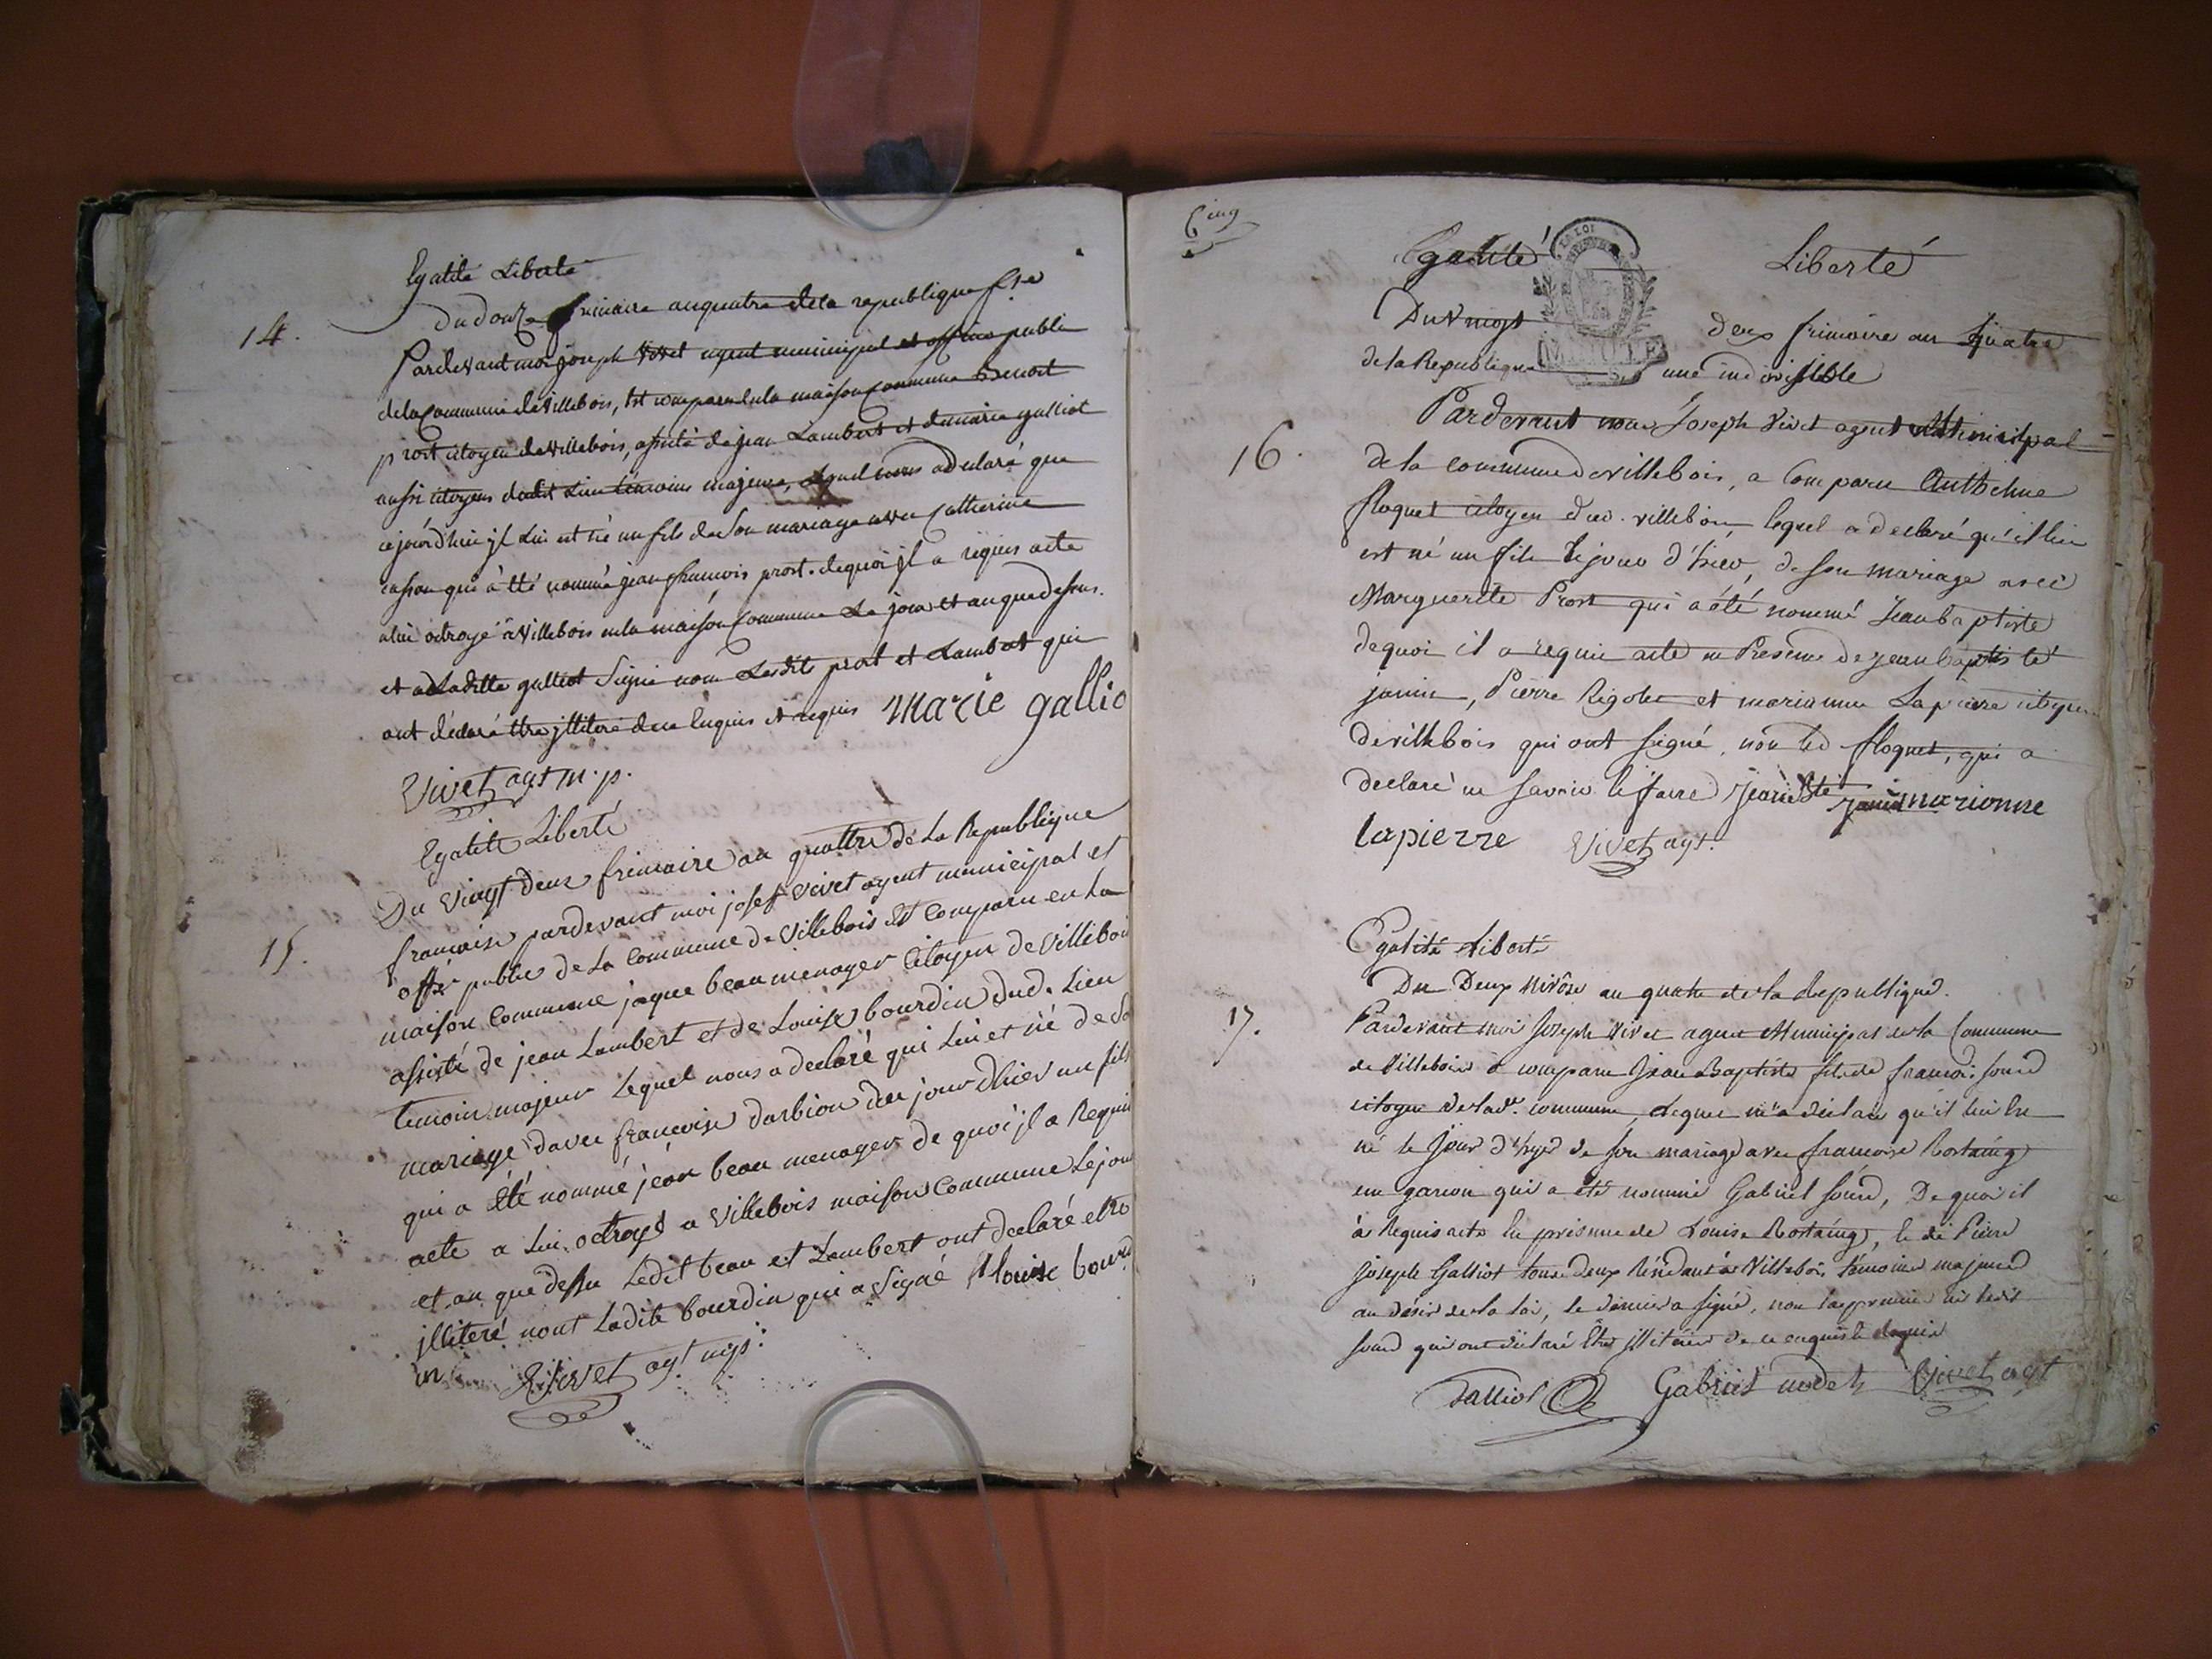 14.
Egalité Liberté
Du douze frimaire anquatre dela republique fse
Pardevant moi joseph Vivet agent municipal et officier public
delaCommune deVillebois, Est comparu enla maison Commune Benoit
prost citoyen deVillebois, assisté dejean Lambert et demarie galliot
aussi citoyens dudit Lieu temoins majeurs, Lequel nous adeclaré que
cejourd'hui jl Lui est né un fils de Son mariage avec Catherine
casson qui à été nommé jean francois prost. dequoi jl a requis acte
alui octroyé à Villebois enla maison Commune Le jour et anque dessus.
et aLaditte galliot Signé non Lesdits prost et Lambert qui
ont déclaré être jlliteré dece Enquis et requis Marie gallio
Vivet agt m. p.
15.
Egalité Liberté
Du Vingt deux frimaire an quattre de La Republique
francaise pardevant moi josef Vivet agent municipal et
offer public de La Commune de Villebois Est Comparu en La
maison Commune jaque beau menager Citoyen de Villeboi
assisté de jean Lambert et de Louise bourdin dud. Lieu
temoin majeur Lequel nous a declaré qui Lui et né de So
mariage davec francoise darbion du jour dhier un fils
qui a Eté nommé jean beau menager de quoi jl a Requis
acte a Lui octroyé a Villebois maison Commune Le jour
et an que dessu Ledit beau et Lambert ont declaré etre
jlliteré nont Ladite bourdin qui a Signé Louise bourd
in Vivet agt mp.
Cinq
Egalité Liberté
Du Vingt deux frimaire an Quatre
de la Republique une indivisible
16.
Pardevant nous Joseph Vivet agent Municipal
de la commune de villebois, a Comparu Anthelme
floquet citoyen dud. villebois lequel a declaré qu'il lui
est né un fils le jour d'hier, de son mariage avec
Marguerite Prost qui a été nommé Jean baptiste
dequoi il a requis acte en Presence de jean baptiste
janin, Pierre Rigolet et marianne Lapierre citoyens
de villebois qui ont signé, non led floquet, qui a
declaré ne savoir le faire Jean bte Janin marionne
lapierre Vivet agt.
17.
Egalité Liberté
Du Deux Nivôse an quatre de la Republique.
Pardevant moi Joseph Vivet agent Municipal de la Commune
de Villebois à comparu Jean Baptiste fils de francois sourd
citoyen de lade. commune, Lequel m'a déclaré qu'il lui Est
né le jour d'hyer de son mariage avec francoise Rostaing
un garcon qui a été nommé Gabriel sourd, De quoi il
à Requis acte En présence de Louise Rostaing, & de Pierre
Joseph Galliot tous deux Résidant à Villebois témoins majeurs
au désir de la loi, le dernier a signé, non la première ni ledit
sourd qui ont déclaré Etre jllitérés de ce enquis & requis
Galliot Gabriel Vivet agt